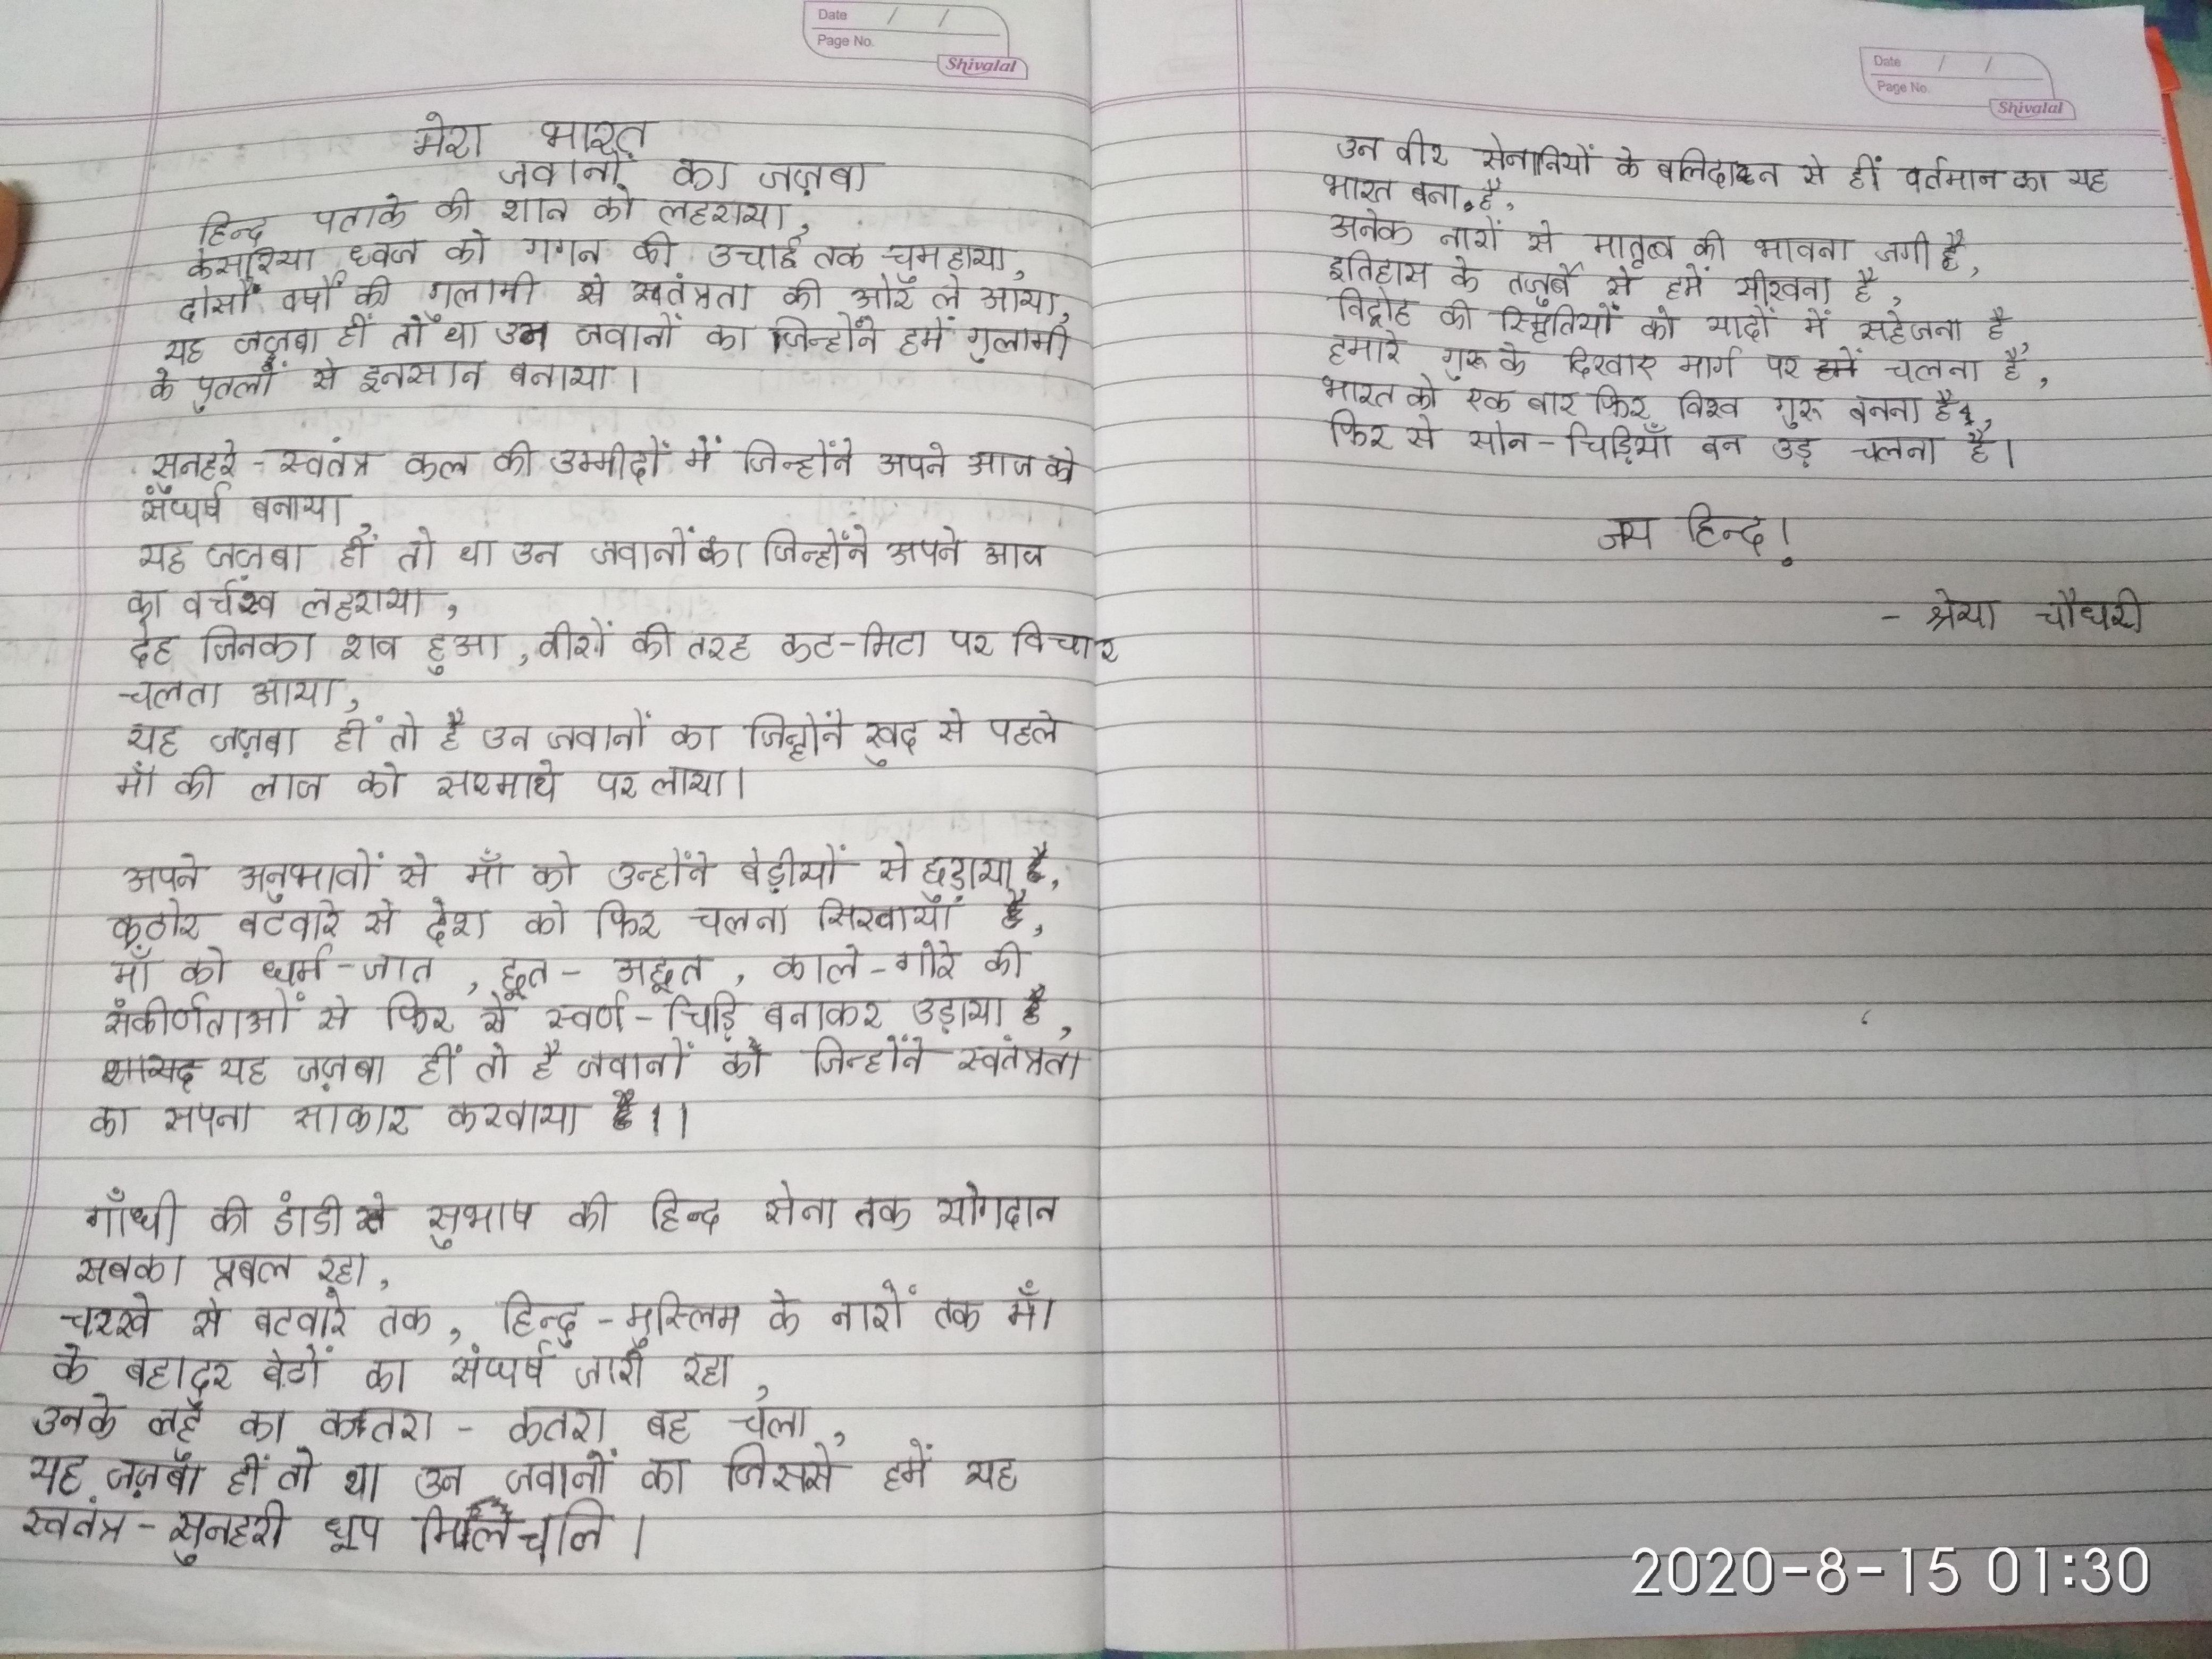 Date / /
Page No.
Shivalal
मेरा भारत
जवानों का जज़बा
हिन्द पताके की शान को लहराया,
केसरिया ध्वज को गगन की उचाई तक
दोसौ वर्षों की गुलामी से स्वतंत्रता की ओर ले आया,
यह जज़बा हीं तो था उन जवानों का जिन्होंने हमें गुलामी
के पुतलों से इनसान बनाया।
सुनहरे - स्वतंत्र कल की उम्मीदों में जिन्होंने अपने आज को
संघर्ष बनाया,
यह जज़बा हीं तो था उन जवानों का जिन्होंने अपने आज
का वर्चस्व लहराया,
देह जिनका शव हुआ, वीरों की तरह कट-मिटा पर विचार
चलता आया,
यह जज़बा हीं तो है उन जवानों का जिन्होंने खुद से पहले
माँ की लाज को सरमाथे पर लाया।
अपने अनुभावों से माँ को उन्होंने बेड़ीयों से छुड़ाया है,
कठोर बटवारे से देश को फिर चलना सिखायाँ है,
माँ को धर्म-जात, छूत-अछूत, काले-गोरे की
संकीर्णताओं से फिर से स्वर्ण-चिड़ि बनाकर उड़ाया है,
यह जज़बा हीं तो है जवानों का जिन्होंने स्वतंत्रता
का सपना साकार करवाया है।।
गाँधी की डांडी से सुभाष की हिन्द सेना तक योगदान
सबका प्रबल रहा,
चरखे से बटवारे तक, हिन्दु-मुस्लिम के नारों तक माँ
के बहादुर बेटों का संघर्ष जारी रहा,
उनके लहू का कतरा - कतरा बह चला,
यह जज़बा हीं तो था उन जवानों का जिससे हमें यह
स्वतंत्र - सुनहरी धूप मिल चलि।
Date / /
Page No.
Shivalal
उन वीर सेनानियों के बलिदान से हीं वर्तमान का यह
भारत बना है,
अनेक नारों से मातृत्व की भावना जगी है,
इतिहास के तजुर्बे से हमें सीखना है,
विद्रोह की स्मृतियों को यादों में सहेजना है,
हमारे गुरू के दिखाए मार्ग पर हमें चलना है,
भारत को एक बार फिर विश्व गुरू बनना है,
फिर से सोन-चिड़ियाँ बन उड़ चलना है।
जय हिन्द!
- श्रेया चौधरी
2020-8-15 01:30